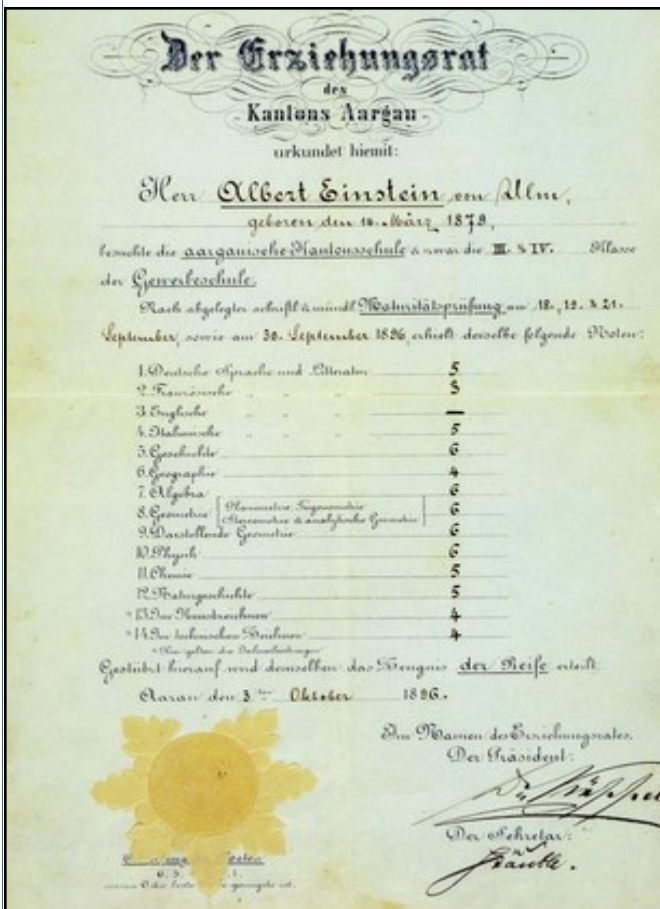 Der Erziehungsrat
des
Kantons Aargau
urkundet hiemit:
Herr Albert Einstein von Ulm,
geboren den 14. März 1879,
besuchte die aargauische Kantonsschule & zwar die III. & IV. Klasse
der Gewerbeschule.
Nach abgelegter schriftl. & mündl. Maturitätsprüfung am 18., 19. & 21.
September, sowie am 30. September 1896, erhielt derselbe folgende Noten:
1. Deutsche Sprache und Litteratur 5
2. Französische " " " 3
3. Englische " " " —
4. Italienische " " " 5
5. Geschichte 6
6. Geographie 4
7. Algebra 6
8. Geometrie [Planimetrie, Trigonometrie Stereometrie & analytische Geometrie] 6
9. Darstellende Geometrie 6
10. Physik 6
11. Chemie 5
12. Naturgeschichte 5
* 13. Im Kunstzeichnen 4
* 14. Im technischen Zeichnen 4
* Hier gelten die Jahresleistungen.
Gestützt hierauf wird demselben das Zeugnis der Reife erteilt.
Aarau den 3ten Oktober 1896.
Im Namen des Erziehungsrates,
Der Präsident:
Der Sekretär:
Stäuble.